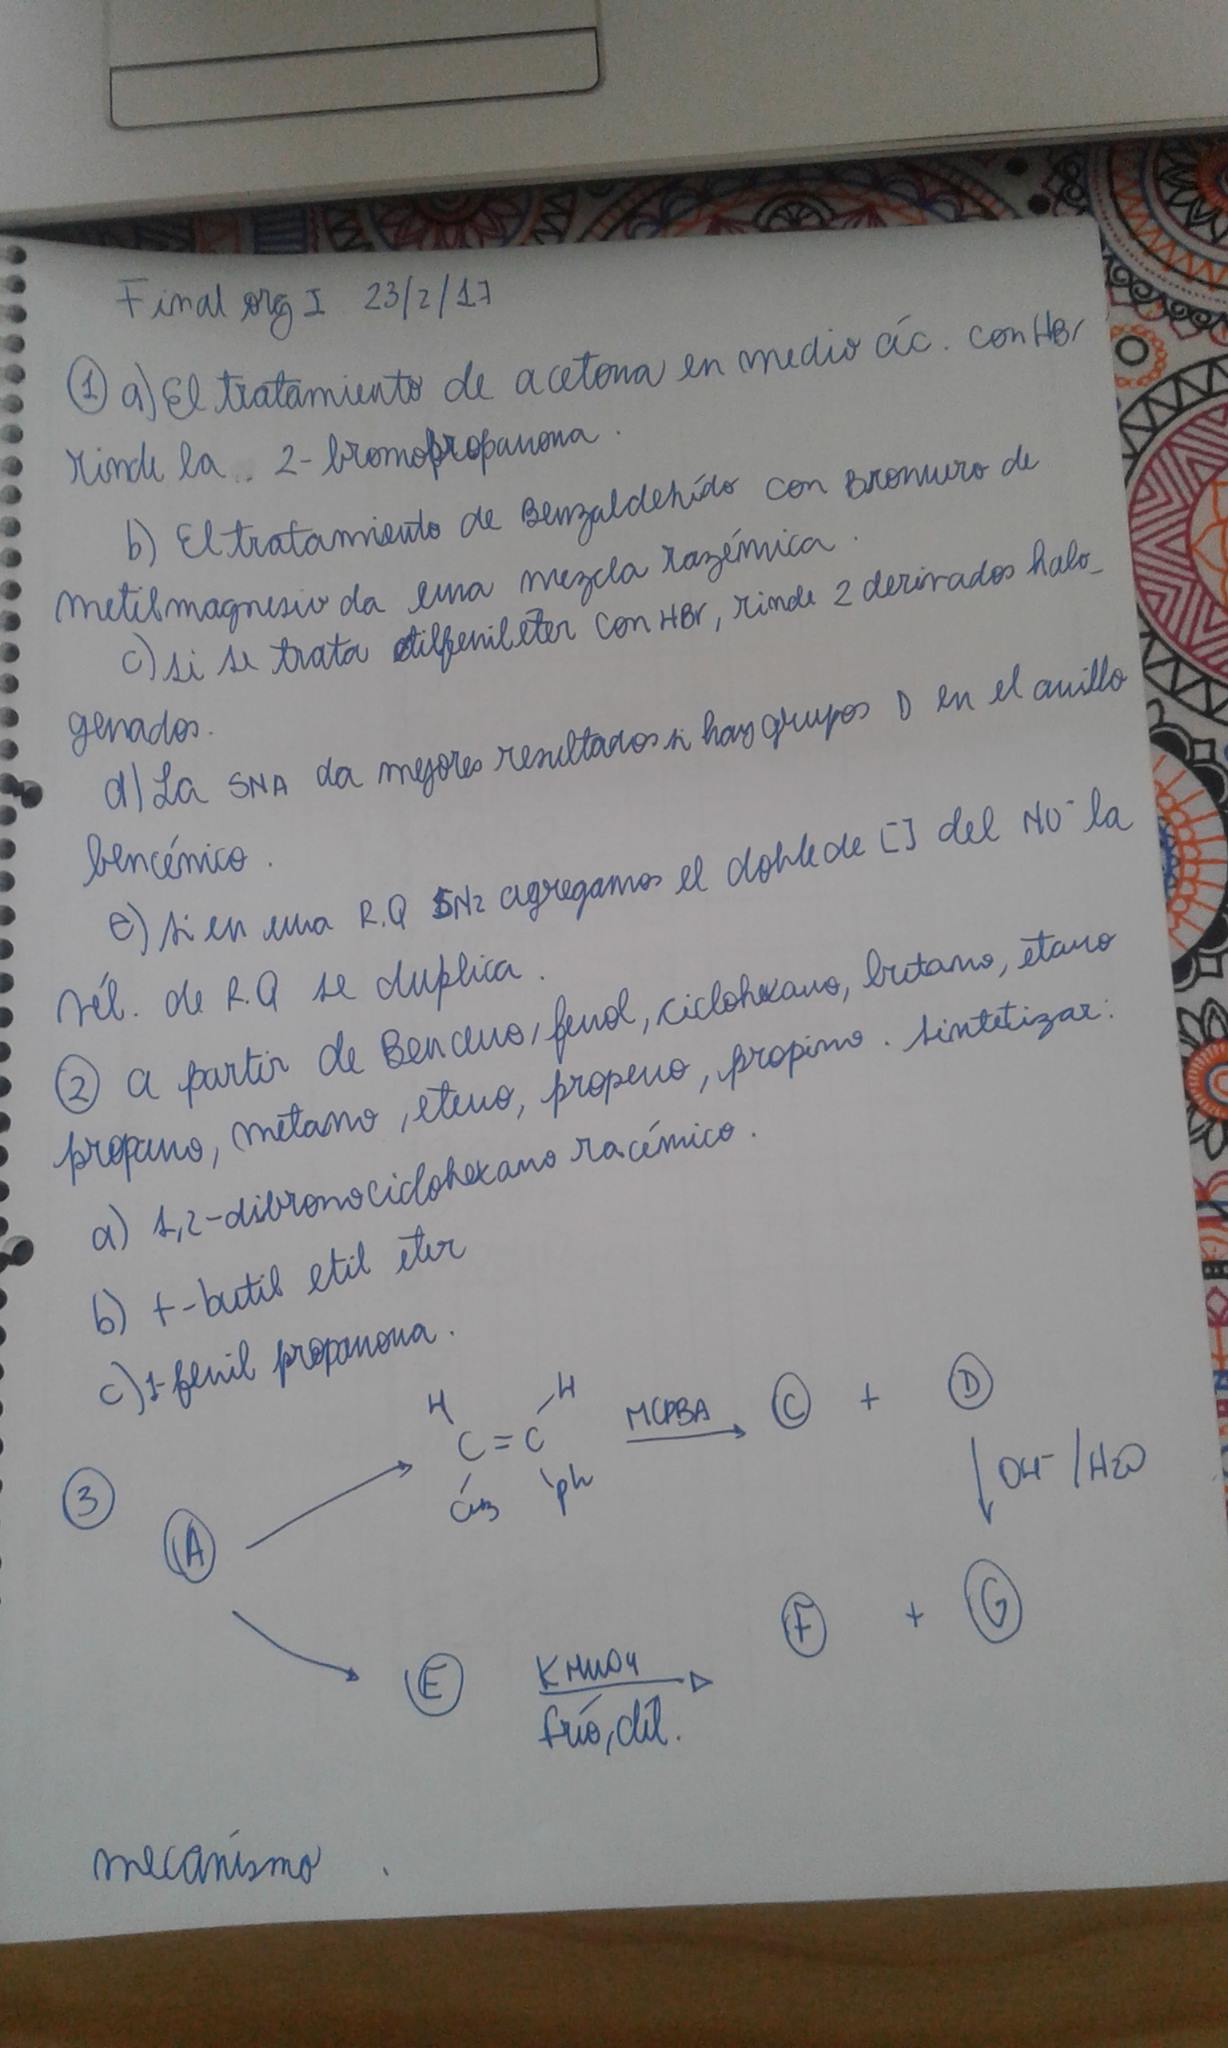 Final org I 23/2/17
① a) El tratamiento de acetona en medio ác. con HBr
rinde la 2-bromopropanona.
b) El tratamiento de Benzaldehído con Bromuro de
metilmagnesio da una mezcla razémica.
c) si se trata etilfenileter con HBr, rinde 2 derivados halo-
genados.
d) La SNA da mejores resultados si hay grupos D en el anillo
bencénico.
e) si en una R.Q SN2 agregamos el doble de [] del NU⁻ la
vél. de R.Q se duplica.
② a partir de Benceno, fenol, ciclohexano, butano, etano
propano, metano, eteno, propeno, propino. sintetizar:
a) 1,2-dibromociclohexano racémico.
b) t-butil etil eter
c) 1-fenil propanona.
H H
C = C MCPBA C + D
CH3 Ph
③ OH⁻/H2O
A
F + G
E KMnO4
frío, dil.
mecanismo.